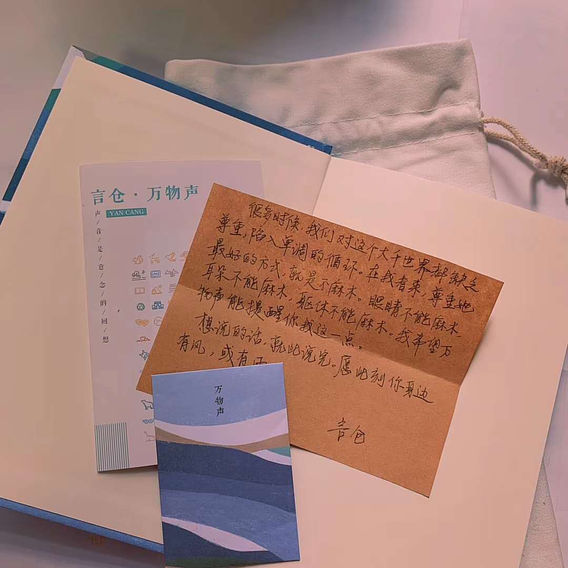 言仓·万物声
YAN CANG
声/音/是/意/念/的/回/想
很多时候,我们对这个大千世界都缺乏
尊重,陷入单调的循环。在我看来,尊重她
最好的方式,就是不麻木。眼睛不能麻木,
耳朵不能麻木,躯体不能麻木。我希望万
物声能提醒你我这一点。
想说的话,就此说完。愿此刻你身边
有风,或有
言仓
万物声